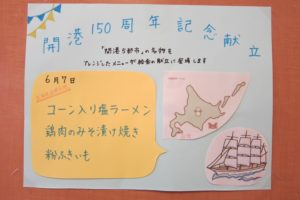 開港150周年記念献立
「開港5都市」の名物を
アレンジしたメニューが給食の献立に登場します
6月7日
コーン入り塩ラーメン
鶏肉のみそ漬け焼き
粉ふきいも